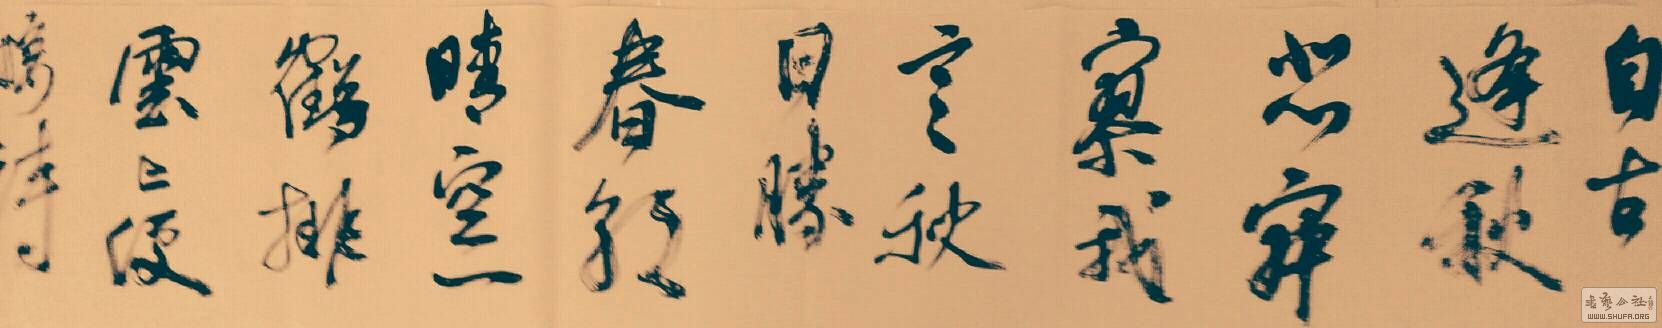 自古
逢秋
悲寂
寥我
言秋
日勝
春朝
晴空一
鶴排
雲上便
詩
WWW.SHUFA.ORG